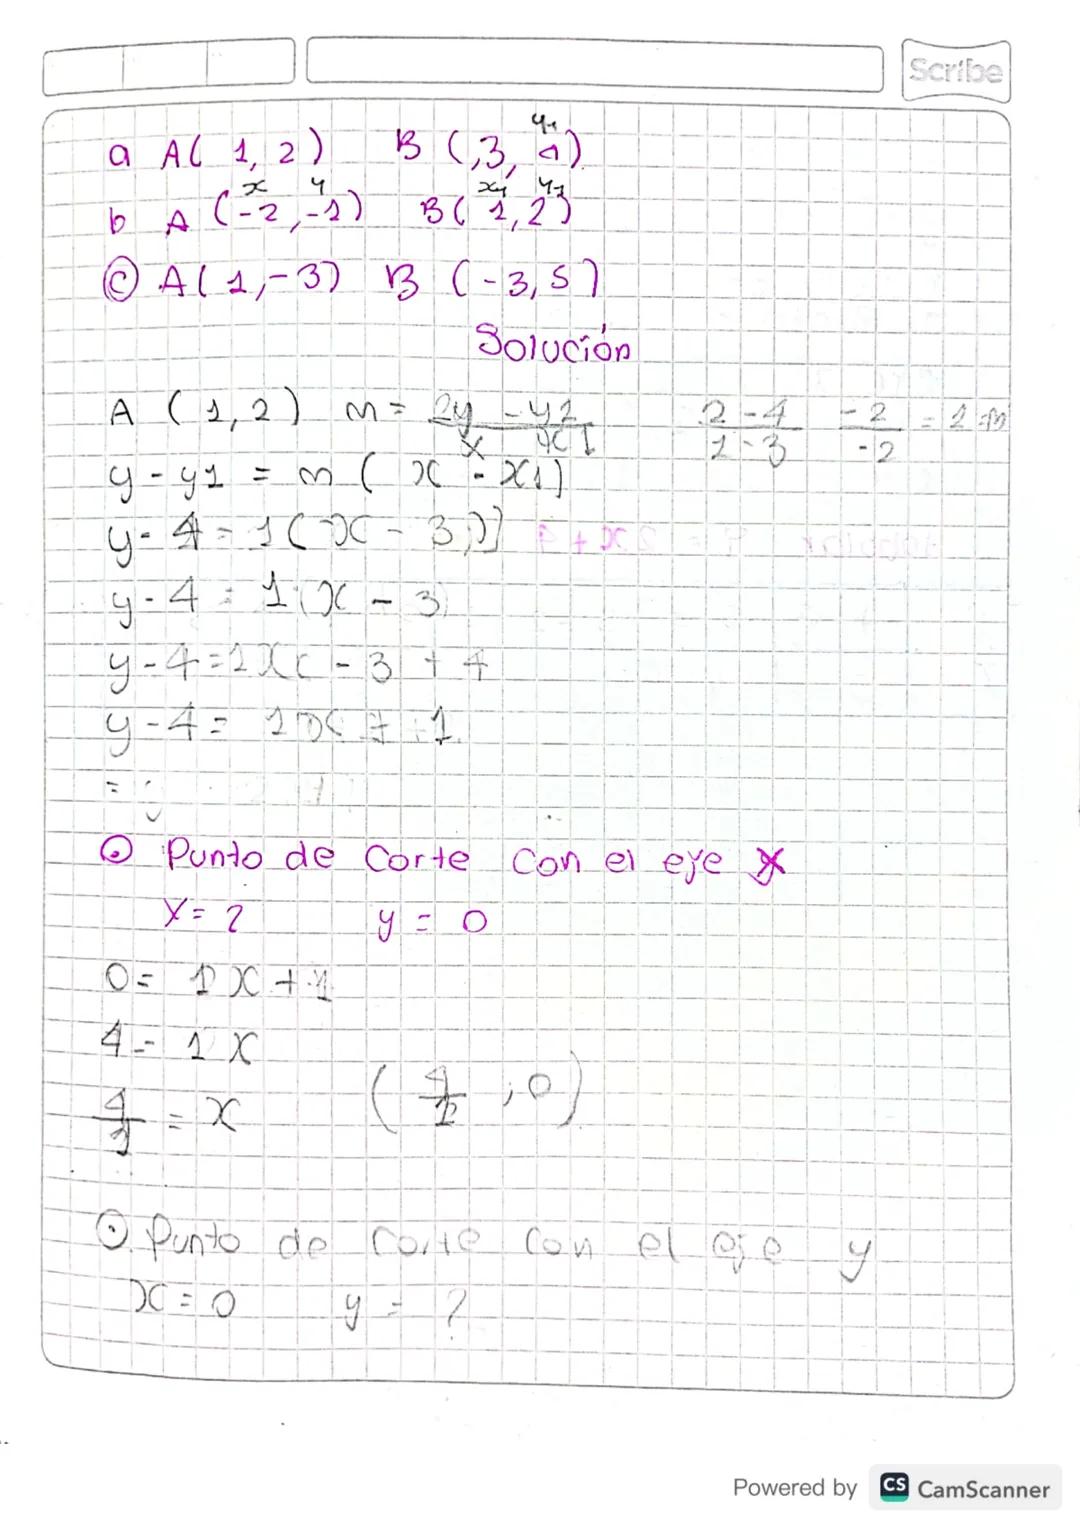 Scribe
y1
a A( 1, 2) B (,3, 4)
x y x1 y1
b A (-2,-1) B( 1,2)
c A( 1,-3) B (-3,5)
Solución
A ( 1,2) m= 2y - y1 2-4 -2 = 1 =m
x x1 1-3 -2
y - y1 = m ( x - x1)
y- 4 = 1 ( x - 3)]
y-4 = 1 (x - 3)
y-4=1x - 3 + 4
y-4= 1x + 1
Punto de Corte Con el eye x
X= ? y = 0
0= 1x + 1
4 = 1x
4/3 = x (4/1 ; 0)
Punto de Corte Con el eje y
x=0 y = ?
Powered by CS CamScanner